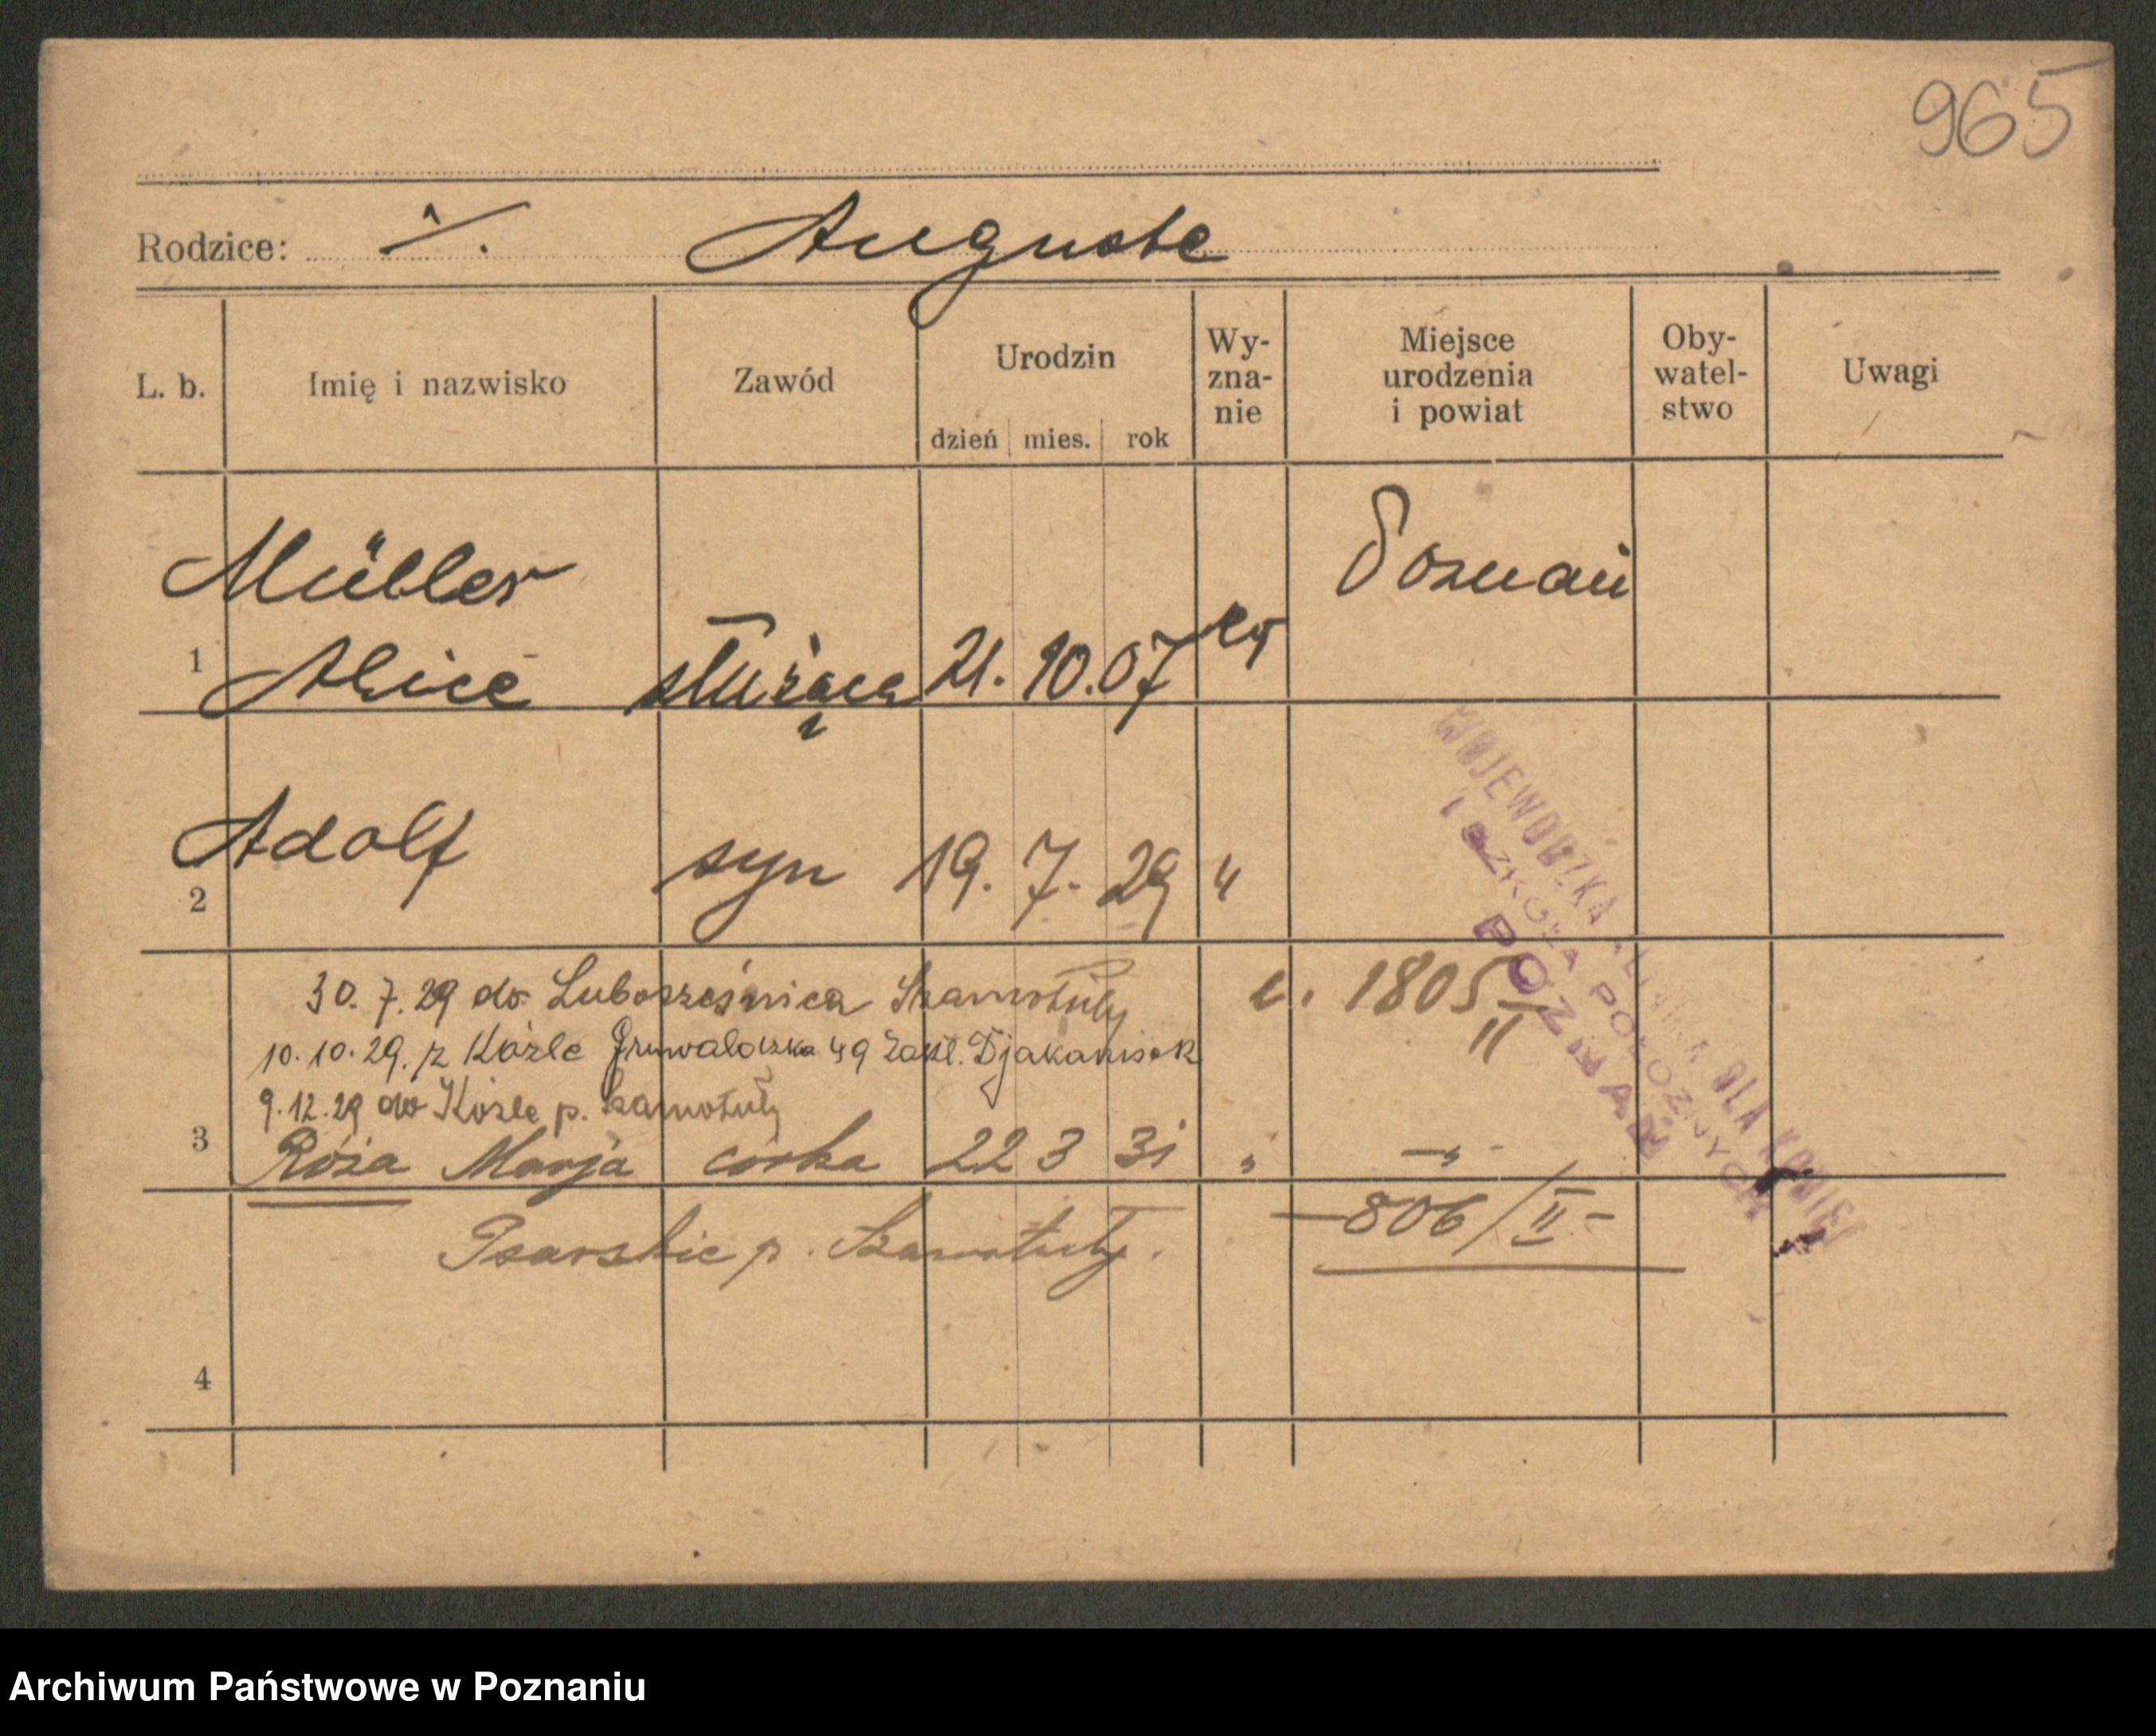 965
Rodzice: ./. Auguste
L. b. Imię i nazwisko Zawód Urodzin dzień mies. rok Wy-zna-nie Miejsce urodzenia i powiat Oby-watel-stwo Uwagi
Müller Poznań
1 Alice służąca 21. 10. 07 ew
Adolf syn 19. 7. 29 "
2
30. 7. 29 do Lubosześnica Szamotuły 1805/II
10. 10. 29. z Koźle Grunwaldzka 49 Zakł. Djakonisek
9. 12. 29 do Koźle p. Szamotuły
3 Róża Marja córka 22 3 31 " —"—
Psarskie p. Szamotuły. —806/II—
4
WOJEWÓDZKA KLINIKA DLA KOBIET
I SZKOŁA POŁOŻNYCH
POZNAŃ
Archiwum Państwowe w Poznaniu